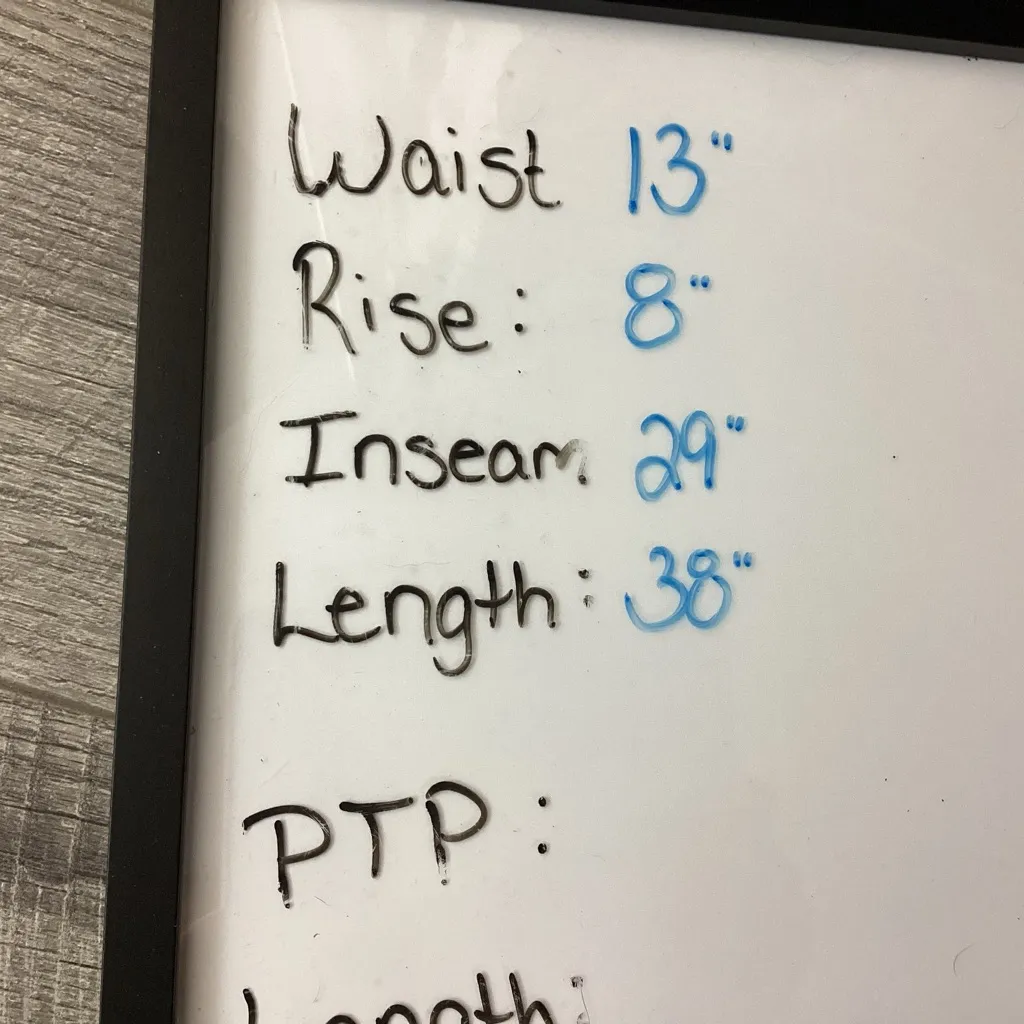 Waist 13"
Rise: 8"
Inseam 29"
Length: 38"
PTP:
Length: